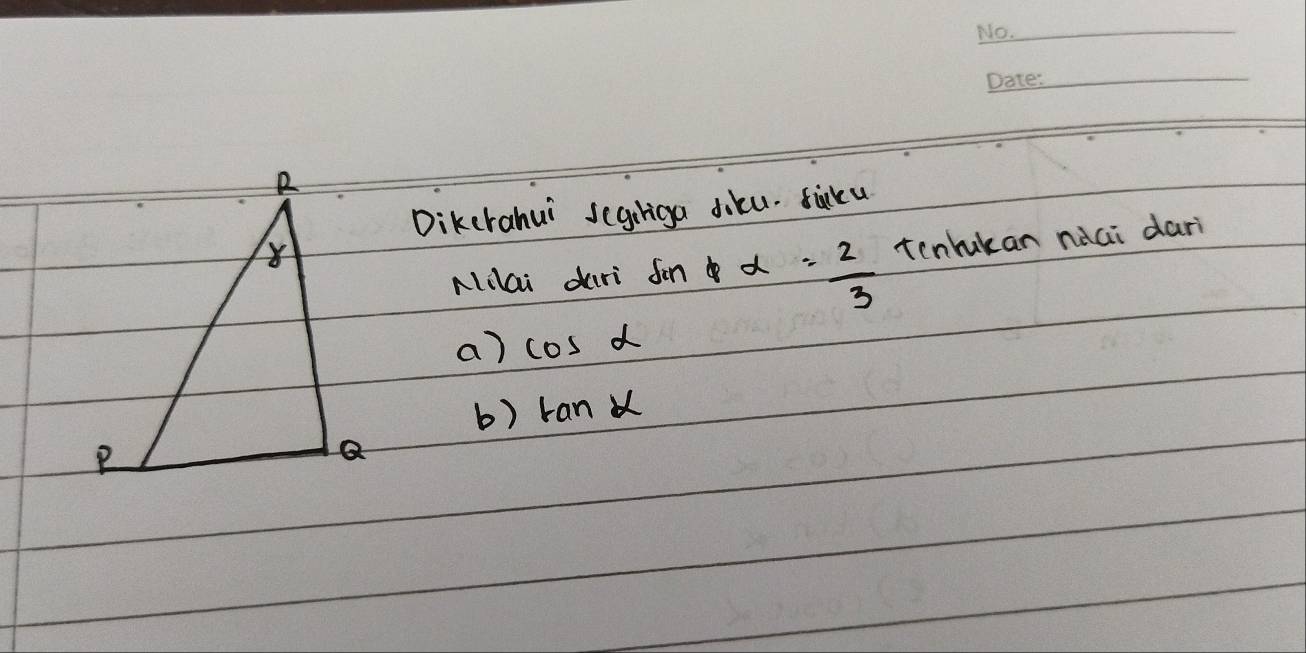 No.
Date:
R
γ
P
Q
Diketahui segitiga siku-siku
Nilai dari sin α = 2/3 tentukan nilai dari
a) cos α
b) tan α